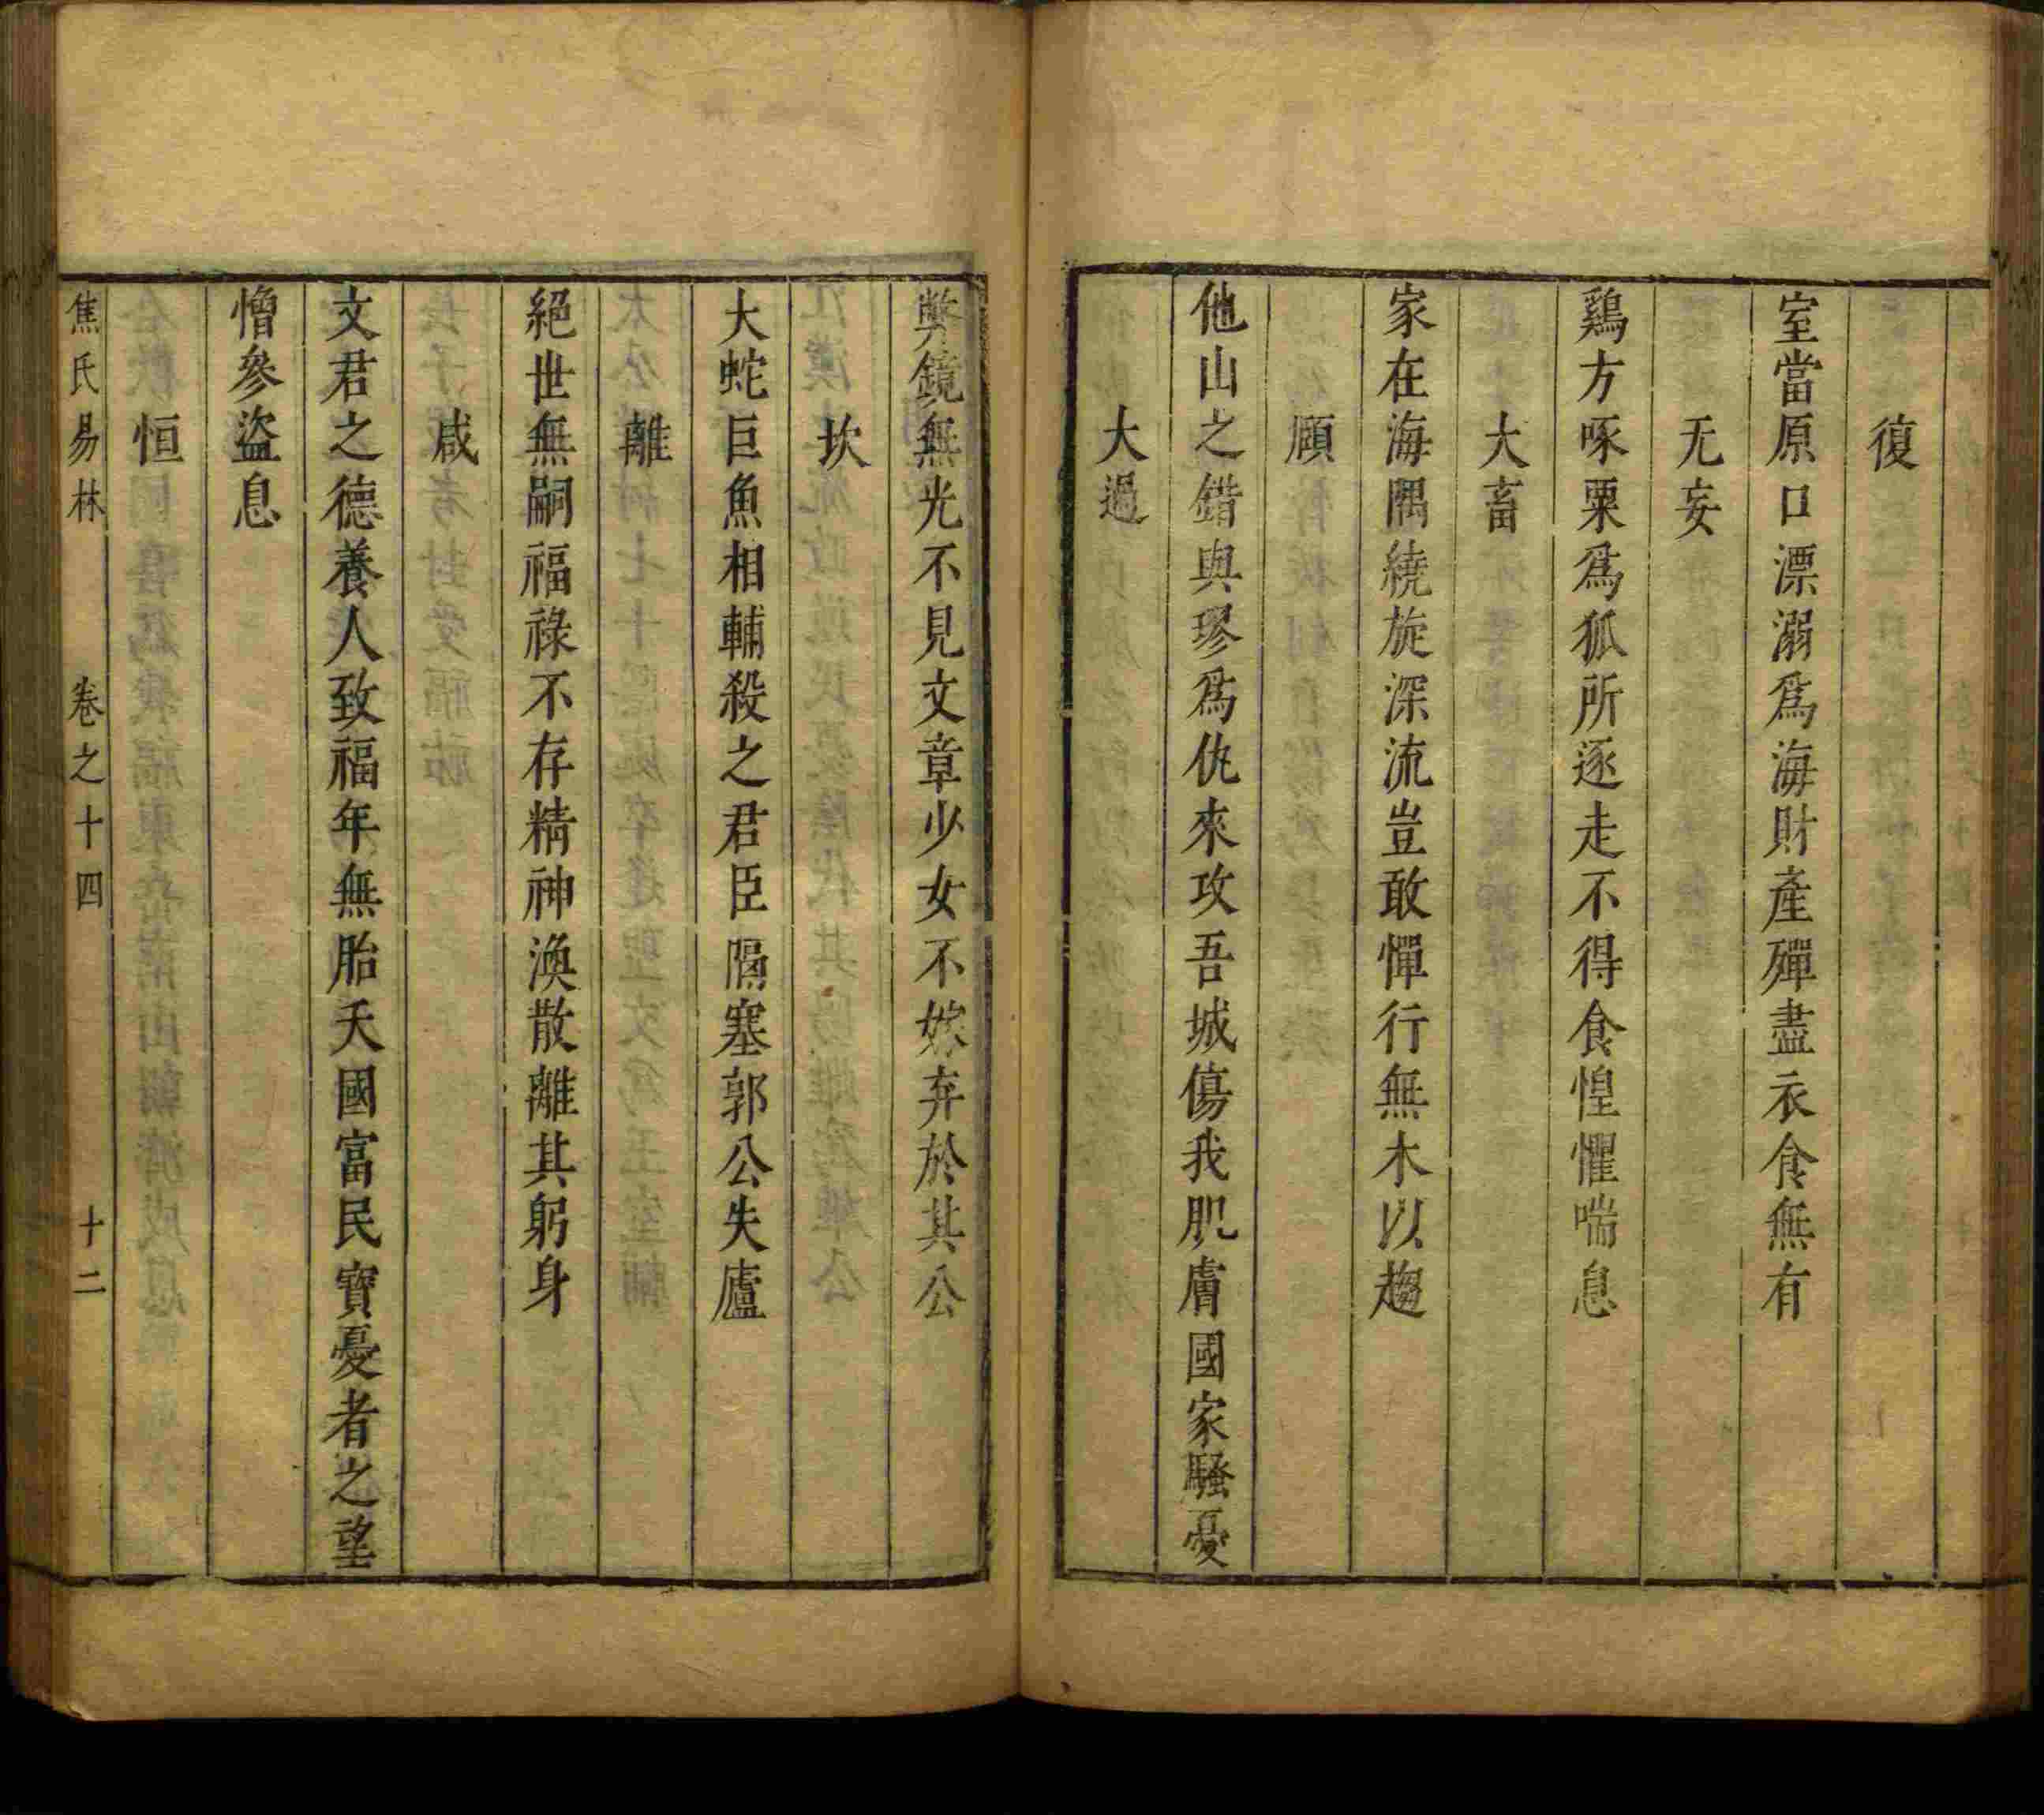 復
室當原口漂溺爲海財產殫盡衣食無有
无妄
鷄方啄粟爲狐所逐走不得食惶懼喘息
大畜
家在海隅繞旋深流豈敢憚行無木以趨
頤
他山之錯與璆爲仇來攻吾城傷我肌膚國家騷憂
大過
弊鏡無光不見文章少女不嫁弃於其公
坎
大蛇巨魚相輔殺之君臣隔塞郭公失廬
離
絕世無嗣福祿不存精神渙散離其躬身
咸
文君之德養人致福年無胎夭國富民寶憂者之望
憎參盜息
恒
焦氏易林 卷之十四 十二